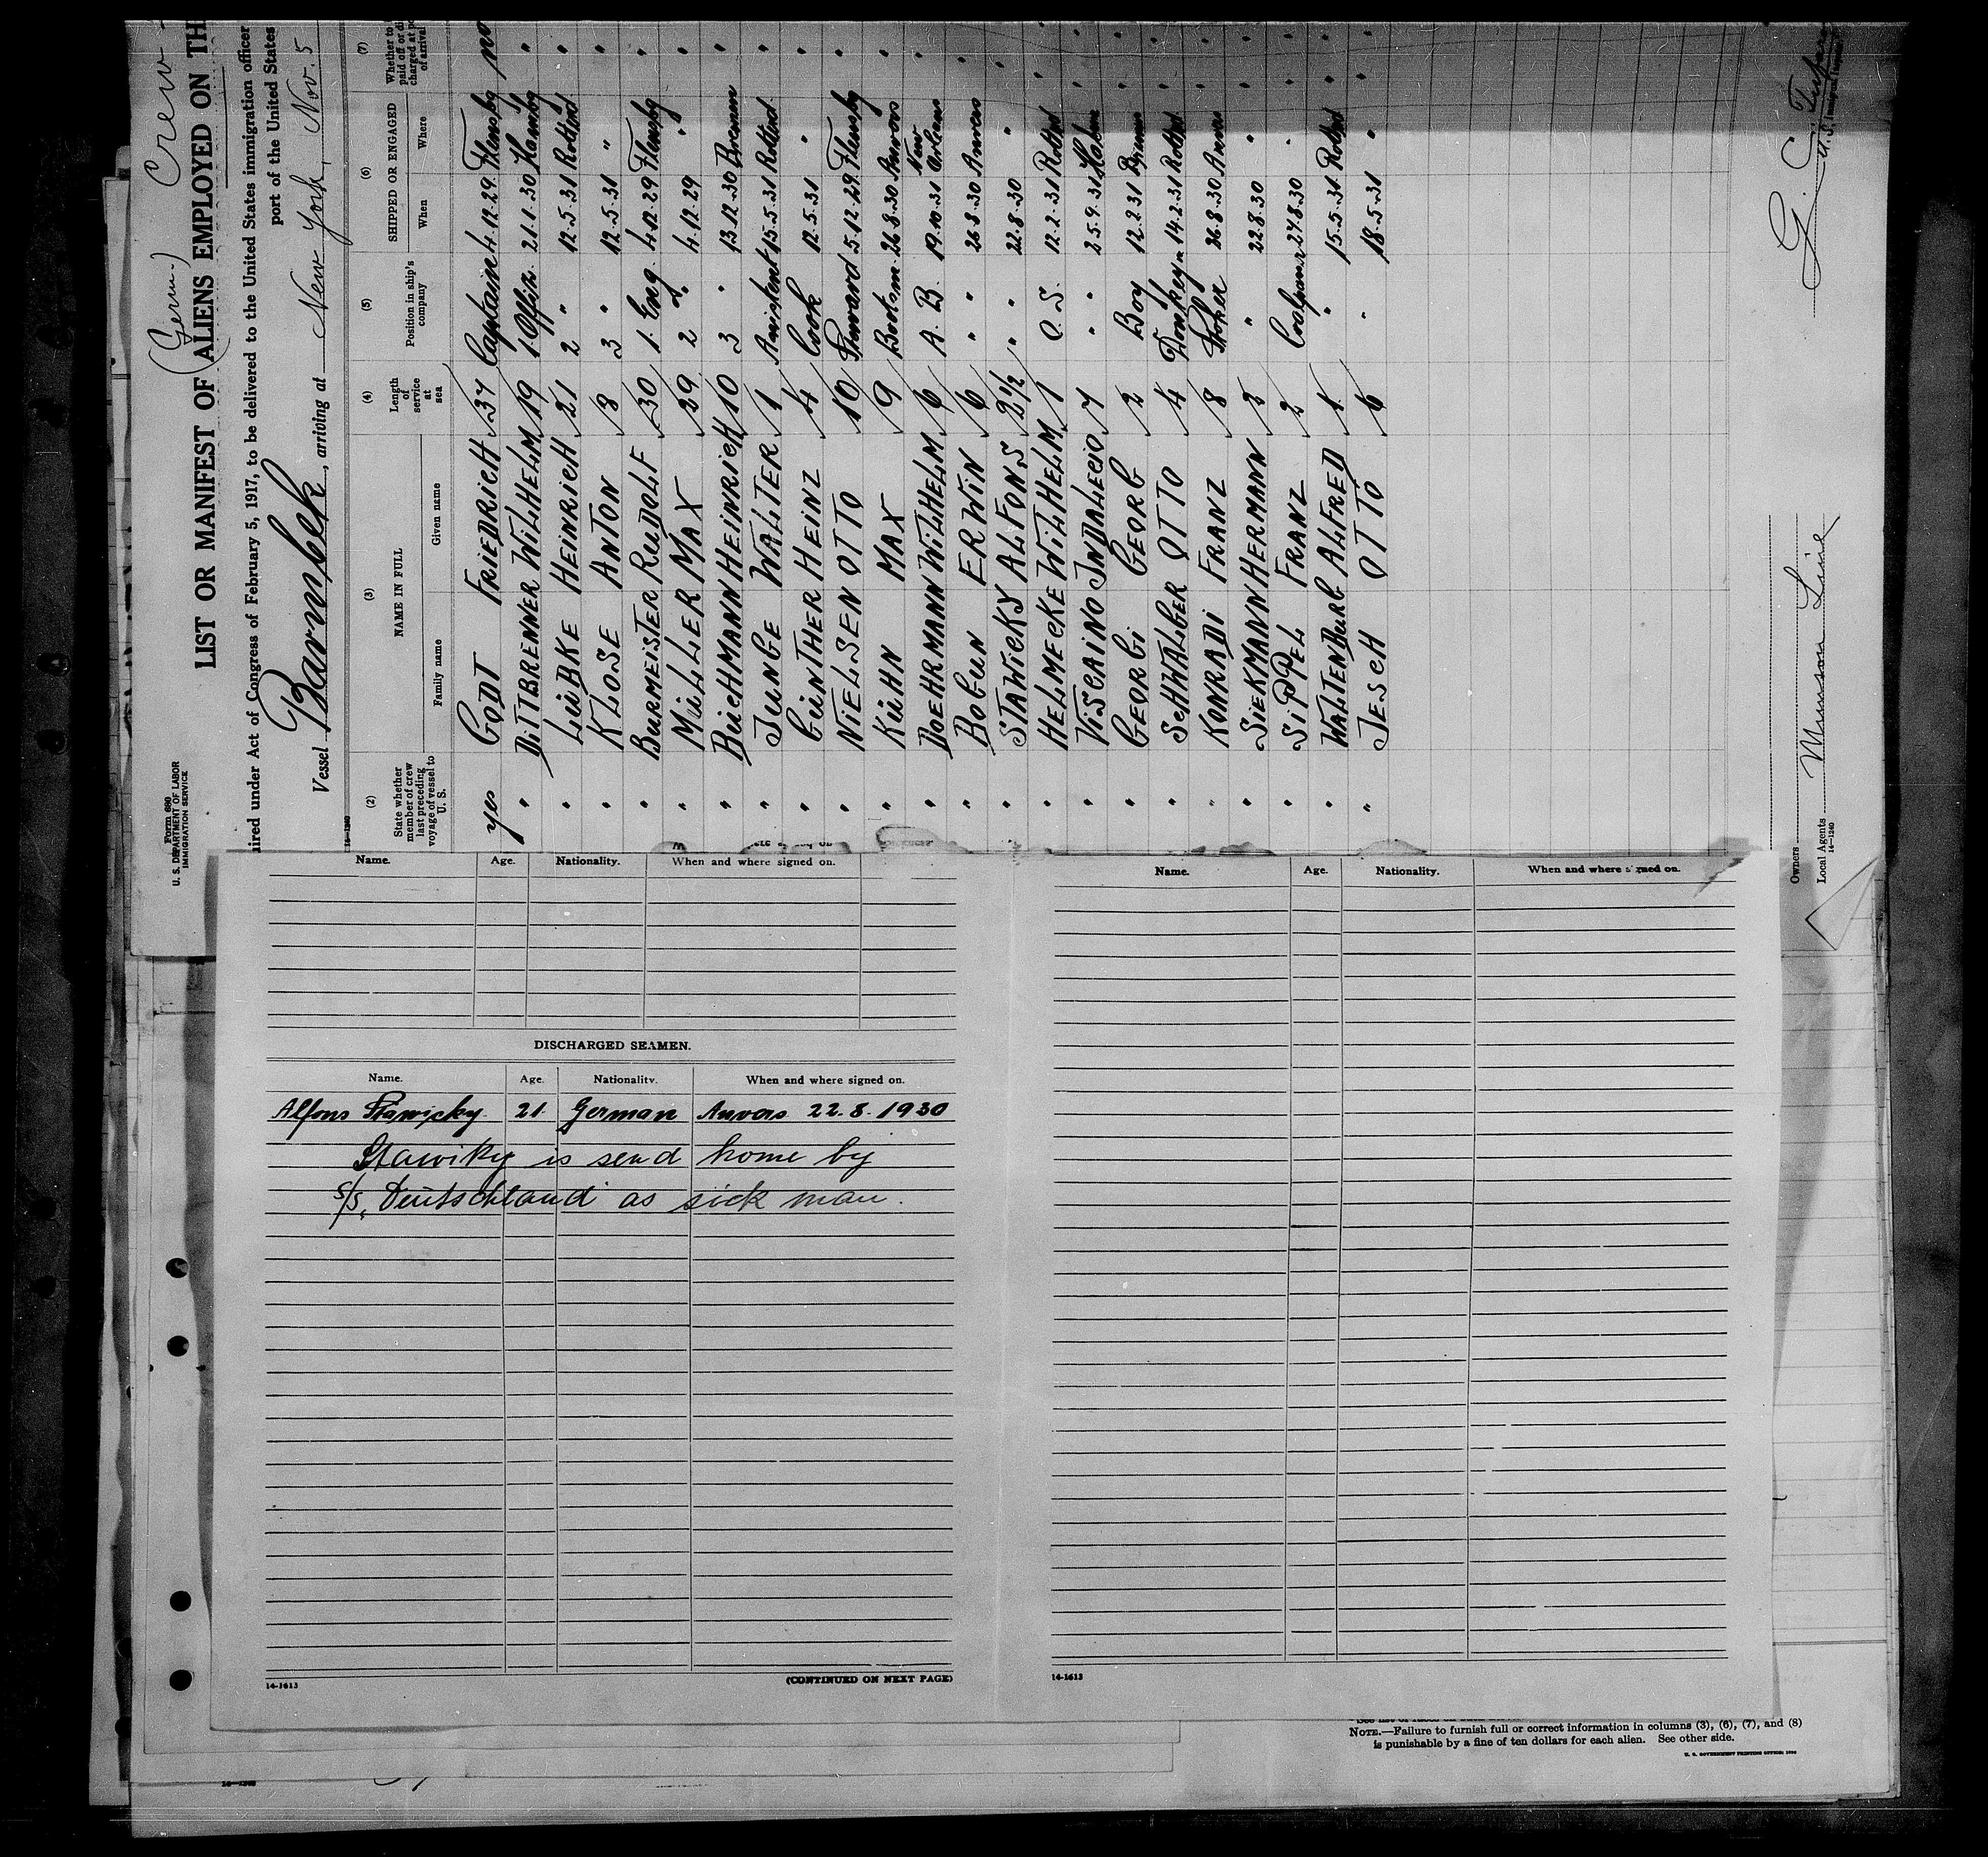 Form 680
U. S. DEPARTMENT OF LABOR
IMMIGRATION SERVICE
(Germ.) Crew
LIST OR MANIFEST OF ALIENS EMPLOYED ON TH
uired under Act of Congress of February 5, 1917, to be delivered to the United States immigration officer
port of the United States
Vessel Barmbek, arriving at New York, Nov. 5
14-1240
(2) (3) (4) (5) (6) (7)
State whether member of crew last preceding voyage of vessel to U. S. NAME IN FULL Family name Given name Length of service at sea Position in ship's company SHIPPED OR ENGAGED When Where Whether to paid off or di charged at p of arrival
yes GODT FRIEDRICH 37 Captain 4.12.29. Flensbg no
" DITTBRENNER WILHELM 19 1 Offiz. 21.1.30 Hambg "
" LÜBKE HEINRICH 21 2 " 12.5.31 Rottrd "
" KLOSE ANTON 3 3 " 12.5.31 " "
" BURMEISTER RUDOLF 30 1. Eng. 4.12.29 Flensbg "
" MÜLLER MAX 29 2 " 4.12.29 " "
" BÜCHMANN HEINRICH 10 3 " 13.12.30 Bremen "
" JUNGE WALTER 1 Assistent 15.5.31 Rottrd. "
" GÜNTHER HEINZ 4 Cook 12.5.31 " "
" NIELSEN OTTO 10 Steward 5.12.29 Flensbg "
" KÜHN MAX 9 Bootsm. 26.8.30 Anvers "
" DOEHRMANN WILHELM 6 A. B. 19.10.31 New Orleans "
" BOGUN ERWIN 6 " 26.8.30 Anvers "
" STAWICKY ALFONS 2½ " 22.8.30 " "
" HELMECKE WILHELM 1 O. S. 12.2.31 Rottrd "
" VISCAINO INDALECIO 7 " 25.9.31 "
" GEORGI GEORG 2 Boy 12.2.31 "
" SCHWALGER OTTO 4 Donkeym 14.2.31 Rottrd "
" KONRADI FRANZ 8 Stoker 26.8.30 Anvers "
" SIEKMANN HERMANN 2 " 22.8.30 " "
" SIPPEL FRANZ 2 27.8.30 " "
" WALTENBURG ALFRED 1 " 15.5.31 Rottrd "
" JESCH OTTO 6 " 18.5.31 " "
G. C.
U. S. Immigrant Inspector
Owners
Local Agents Munson Line
14-1240
Name. Age. Nationality. When and where signed on.
DISCHARGED SEAMEN.
Name. Age. Nationality. When and where signed on.
Alfons Stawicky. 21. German Anvers 22.8.1930
Stawiky is send home by
S/S „Deutschland" as sick man.
14-1613 (CONTINUED ON NEXT PAGE)
Name. Age. Nationality. When and where signed on.
14-1613
NOTE.—Failure to furnish full or correct information in columns (3), (6), (7), and (8)
is punishable by a fine of ten dollars for each alien. See other side.